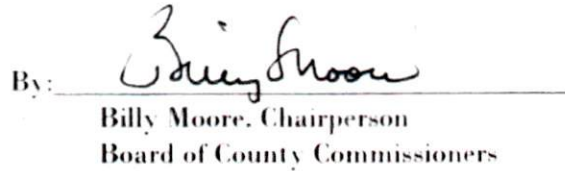 By: Billy Moore
Billy Moore, Chairperson
Board of County Commissioners